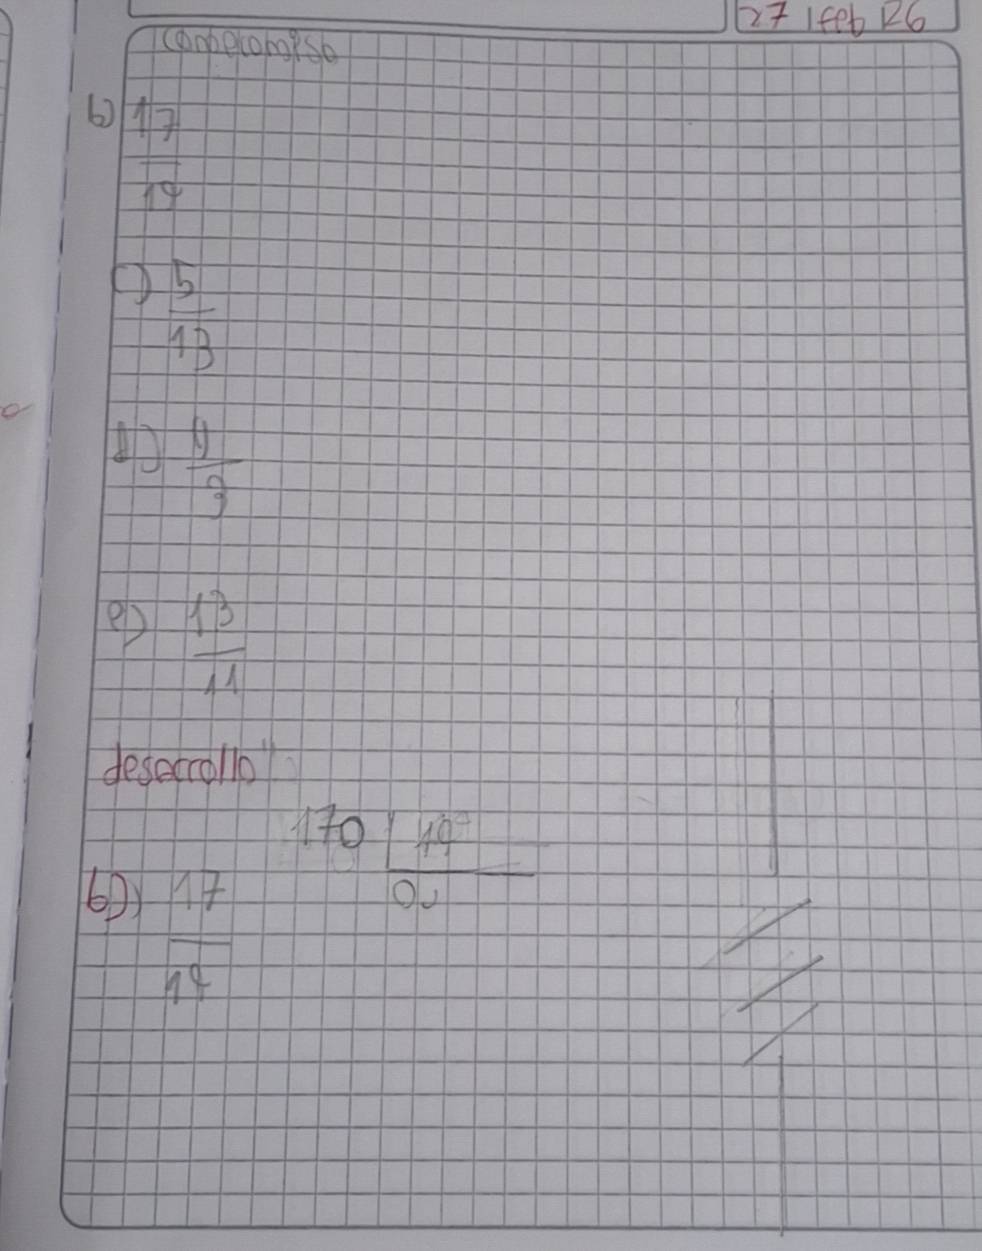 27 feb 26
compromiso
b) 17
19
c) 5
13
d) 9
3
e) 13
11
desarrollo"
170 19
0,
b)) 17
19